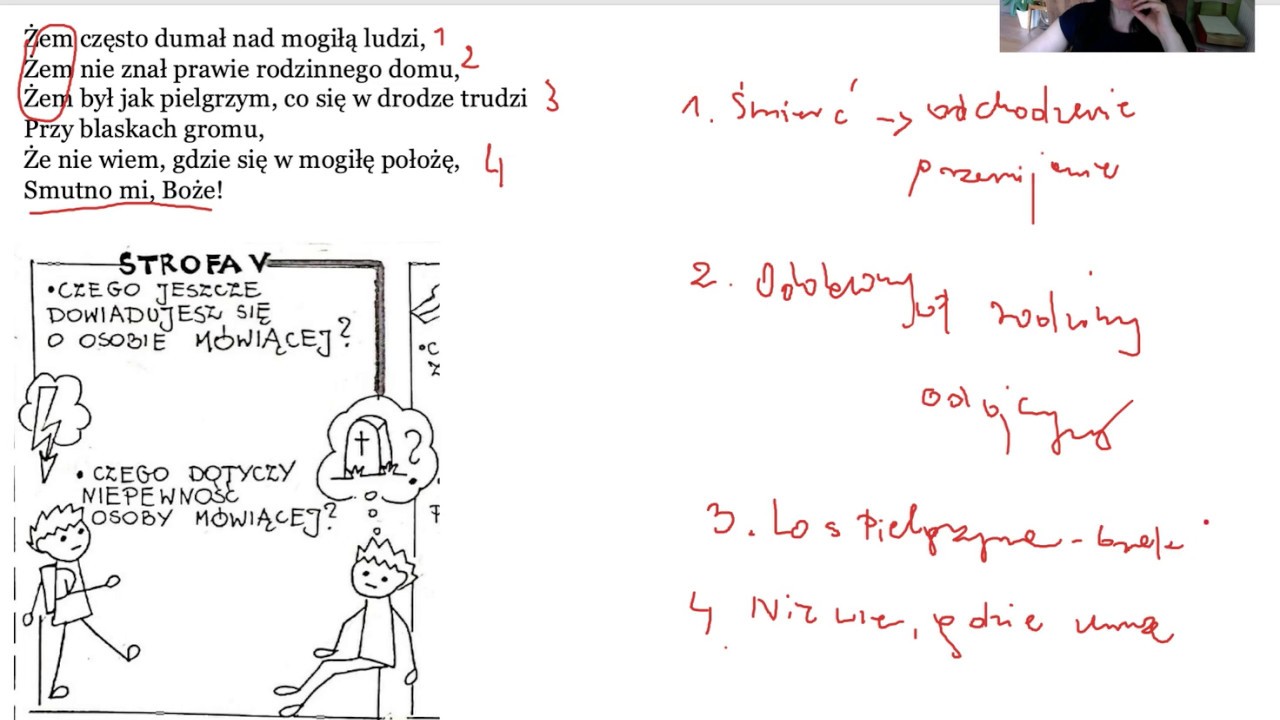 Żem często dumał nad mogiłą ludzi, 1
Żem nie znał prawie rodzinnego domu, 2
Żem był jak pielgrzym, co się w drodze trudzi 3
Przy blaskach gromu,
Że nie wiem, gdzie się w mogiłę położę, 4
Smutno mi, Boże!
STROFA V
•CZEGO JESZCZE
DOWIADUJESZ SIĘ
O OSOBIE MÓWIĄCEJ?
•C
Z
?
• CZEGO DOTYCZY
NIEPEWNOŚĆ
OSOBY MÓWIĄCEJ?
1. Śmierć -> odchodzenie
przemijanie
2. od rodziny
ojczyzny
3. Los Pielgrzyma - brak
4. Nie wie, gdzie umrze